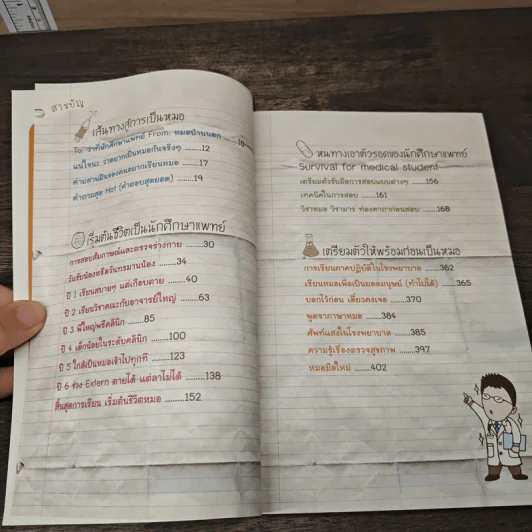 สารบัญ
เส้นทางสู่การเป็นหมอ
To: ว่าที่นักศึกษาแพทย์ From: หมอบ้านนอก .....10
แน่ใจนะ ว่าอยากเป็นหมอกันจริงๆ ........12
ค่ายสานฝันของคนอยากเรียนหมอ ........17
คำถามสุด Hot (คำตอบสุดยอด) ........19
เริ่มต้นชีวิตเป็นนักศึกษาแพทย์
การสอบสัมภาษณ์และตรวจร่างกาย ........30
วันรับน้องหรือวันทรมานน้อง ........34
ปี 1 เรียนสบายๆ แต่เกือบตาย ........40
ปี 2 เรียนวิชาคณะกับอาจารย์ใหญ่ ........63
ปี 3 พี่ใหญ่พรีคลินิก ........85
ปี 4 เด็กน้อยในระดับคลินิก ........100
ปี 5 ใกล้เป็นหมอเข้าไปทุกที ........123
ปี 6 ช่วง Extern ตายได้ แต่ลาไม่ได้ ........138
สิ้นสุดการเรียน เริ่มต้นชีวิตหมอ ........152
หนทางเอาตัวรอดของนักศึกษาแพทย์
Survival for medical student
เตรียมตัวรับมือการสอบแบบต่างๆ .......156
เทคนิคในการสอบ .......161
วิชาหมอ วิชามาร ท่องคาถาก่อนสอบ .......168
เตรียมตัวให้พร้อมก่อนเป็นหมอ
การเรียนภาคปฏิบัติในโรงพยาบาล .......362
เรียนหมอเพื่อเป็นยอดมนุษย์ (ทำไปได้) .......365
บอกไว้ก่อน เดี๋ยวคงเจอ .......370
พูดจาภาษาหมอ .......384
ศัพท์แสงในโรงพยาบาล .......385
ความรู้เรื่องตรวจสุขภาพ ........397
หมอมือใหม่ .......402